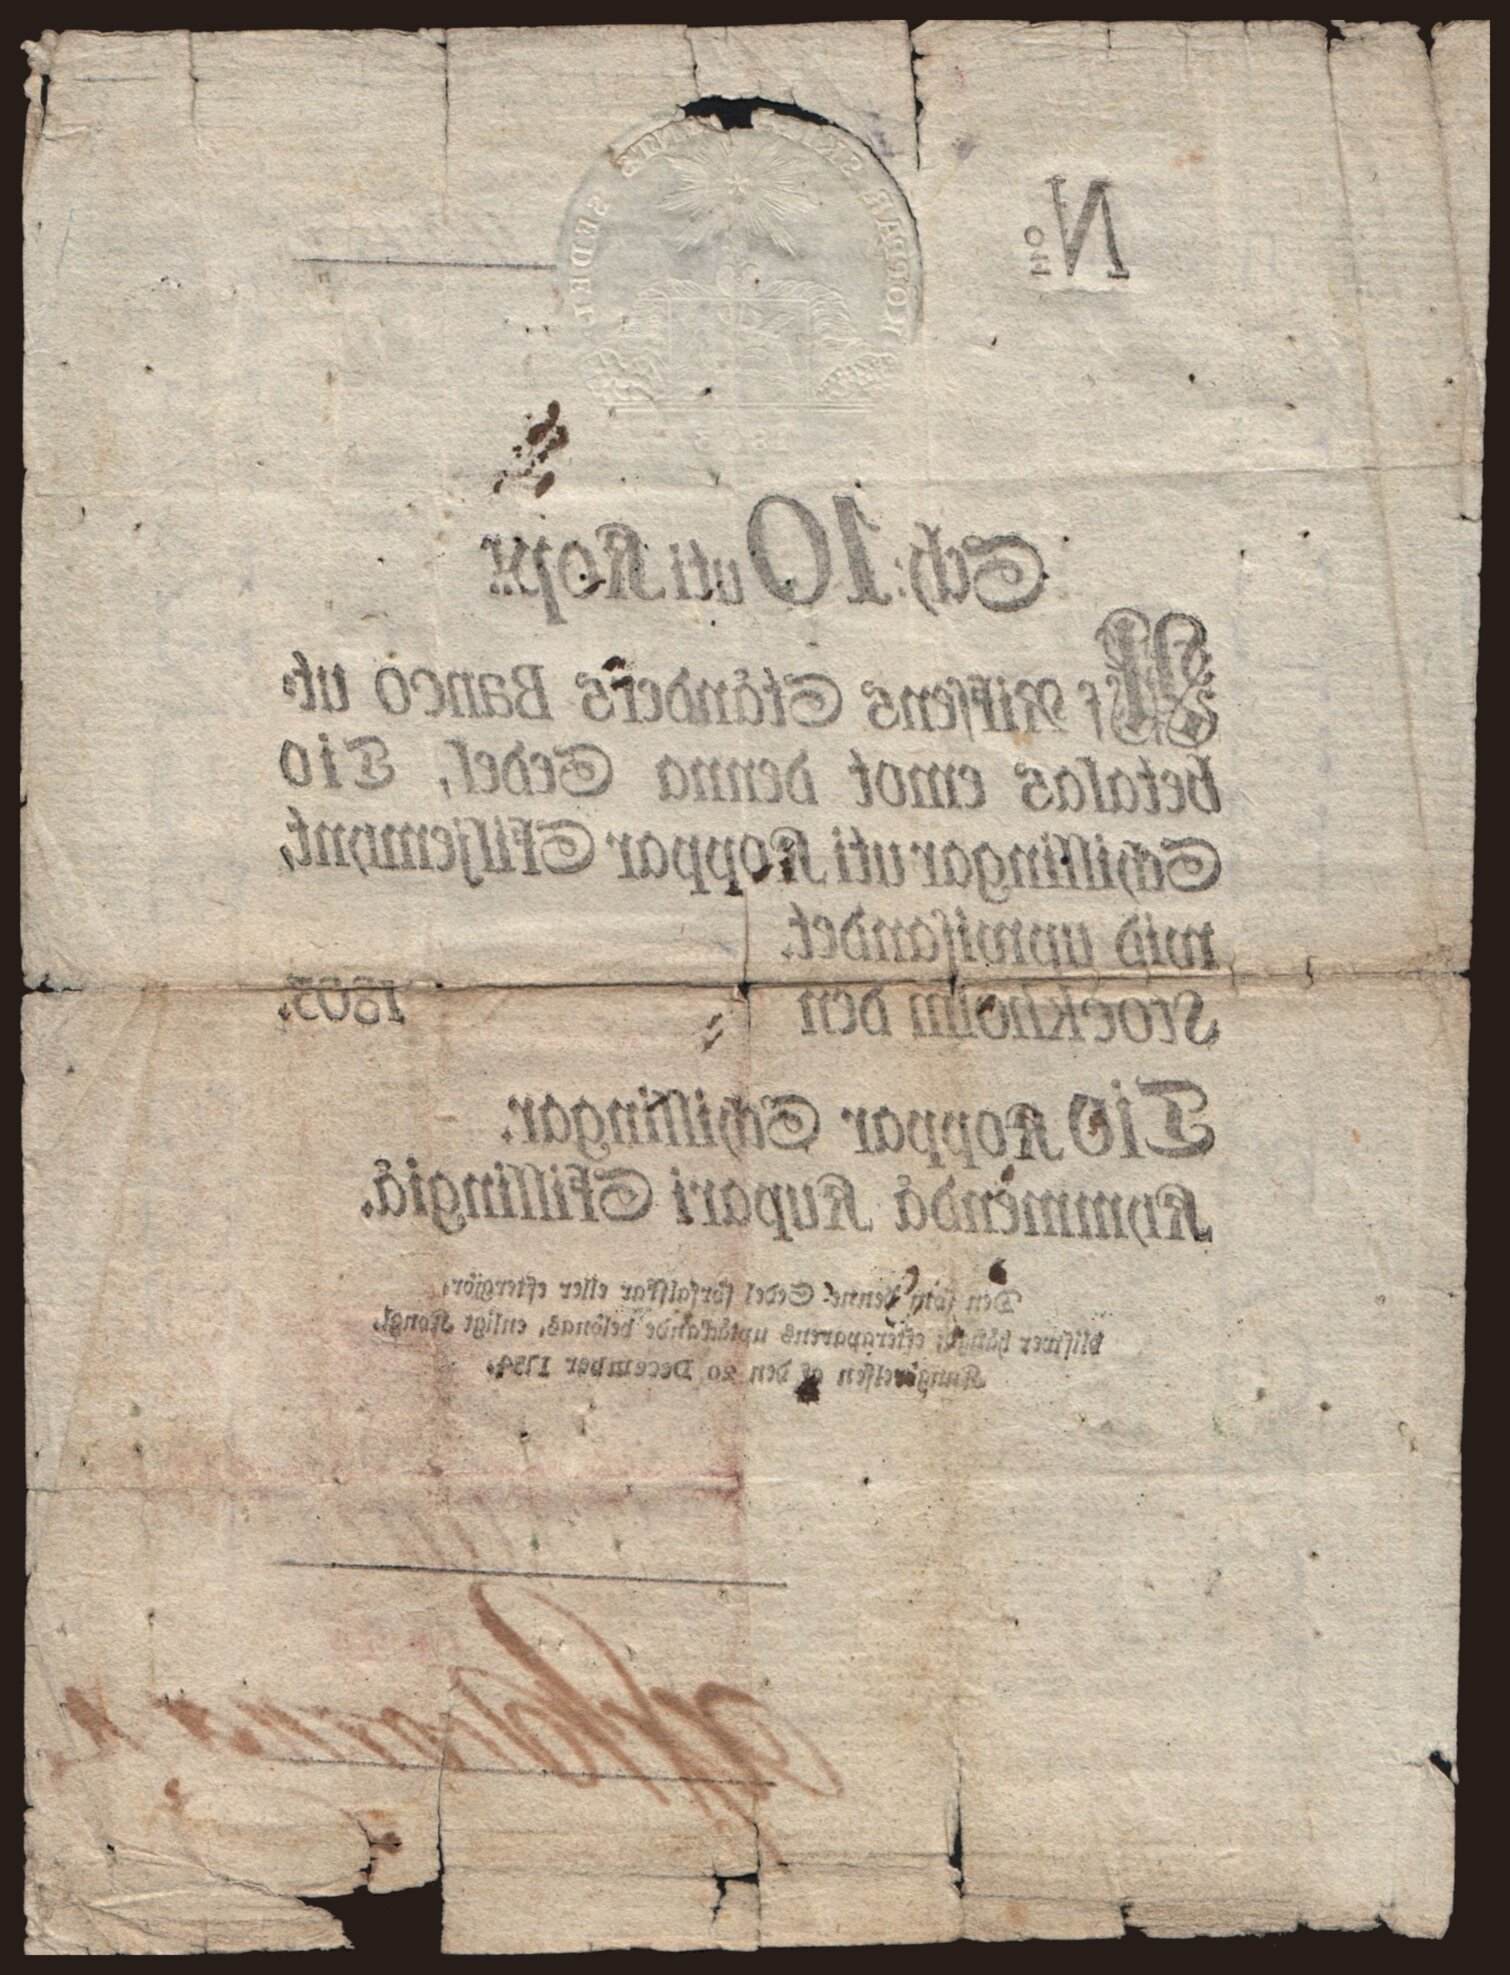 KOPPAR SKILL MYNTS SEDEL
No
Sch: 10 uti Kop:r
Af Riksens Ständers Banco ut-
betalas emot denna Sedel, Tio
Schillingar uti Koppar Skiljemynt,
wid upwisandet.
Stockholm den 1803.
Tio Koppar Schillingar.
Kymmendä Kupari Skillingiä.
Den som denne Sedel förfalskar eller eftergiör,
blifwer hängd; efterapparens uptäckande belönas, enligt Kongl.
Kungörelsen af den 20 December 1754.